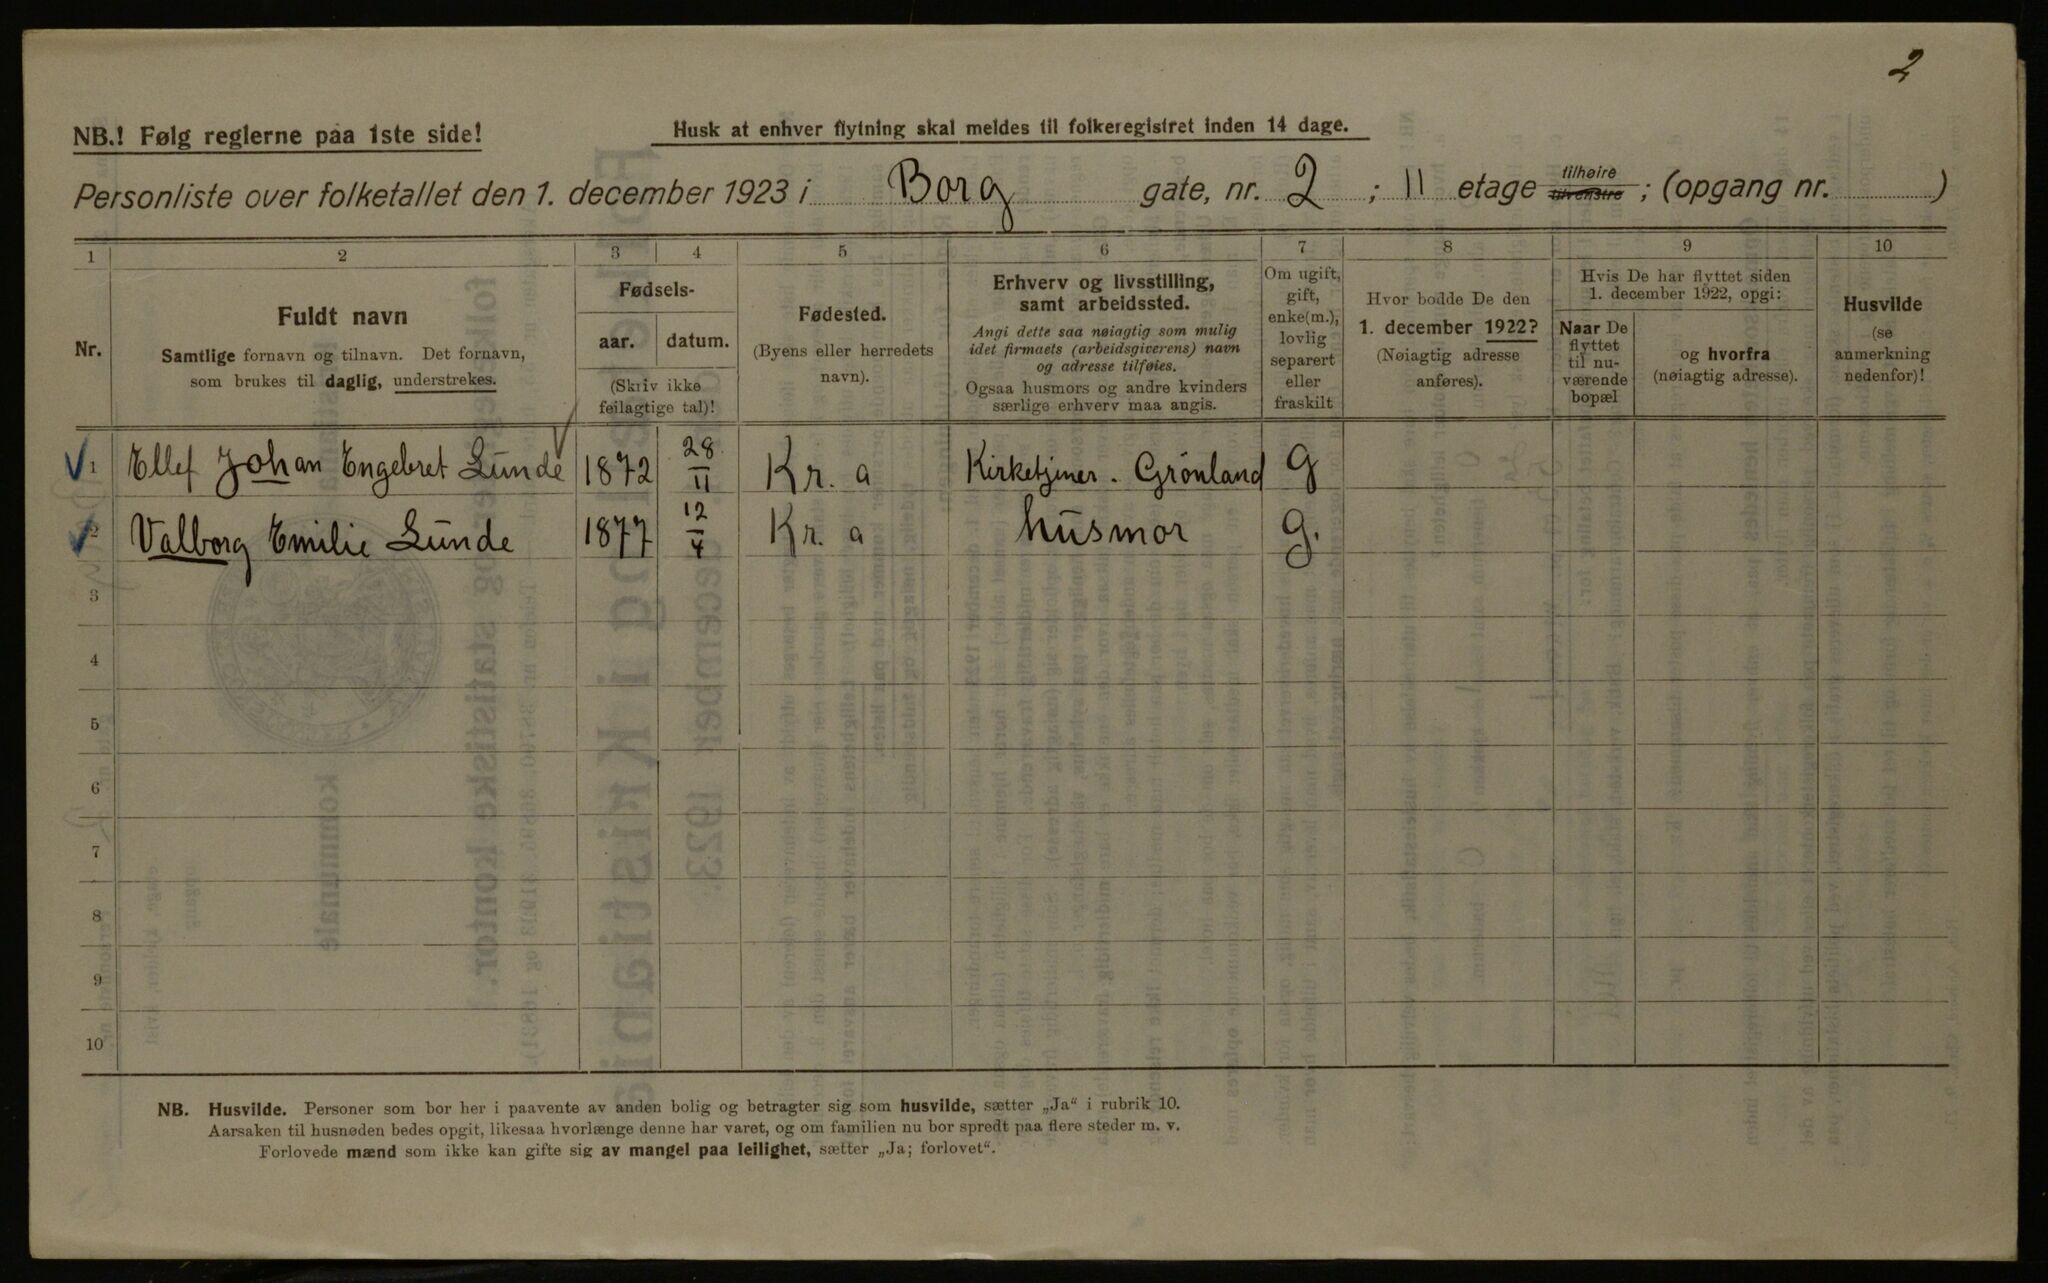 2
NB.! Følg reglerne paa 1ste side!
Husk at enhver flytning skal meldes til folkeregistret inden 14 dage.
Personliste over folketallet den 1. december 1923 i Borg gate, nr. 2 ; II etage tilhøire tilvenstre ; (opgang nr. )
1 2 3 4 5 6 7 8 9 10
Nr.
Fuldt navn
Samtlige fornavn og tilnavn. Det fornavn,
som brukes til daglig, understrekes.
Fødsels-
aar. datum.
(Skriv ikke
feilagtige tal)!
Fødested.
(Byens eller herredets
navn).
Erhverv og livsstilling,
samt arbeidssted.
Angi dette saa nøiagtig som mulig
idet firmaets (arbeidsgiverens) navn
og adresse tilføies.
Ogsaa husmors og andre kvinders
særlige erhverv maa angis.
Om ugift,
gift,
enke(m.),
lovlig
separert
eller
fraskilt
Hvor bodde De den
1. december 1922?
(Nøiagtig adresse
anføres).
Hvis De har flyttet siden
1. december 1922, opgi:
Naar De
flyttet
til nu-
værende
bopæl
og hvorfra
(nøiagtig adresse).
Husvilde
(se
anmerkning
nedenfor)!
1 Ellef Johan Engebret Lunde 1872 28/11 Kr. a Kirketjener. Grønland G
2 Valborg Emilie Lunde 1877 12/4 Kr. a husmor G.
3
4
5
6
7
8
9
10
NB. Husvilde. Personer som bor her i paavente av anden bolig og betragter sig som husvilde, sætter „Ja" i rubrik 10.
Aarsaken til husnøden bedes opgit, likesaa hvorlænge denne har varet, og om familien nu bor spredt paa flere steder m. v.
Forlovede mænd som ikke kan gifte sig av mangel paa leilighet, sætter „Ja; forlovet".